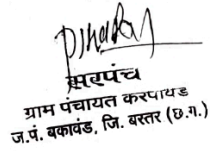 सरपंच
ग्राम पंचायत करपावण्ड
ज.पं. बकावंड, जि. बस्तर (छ.ग.)